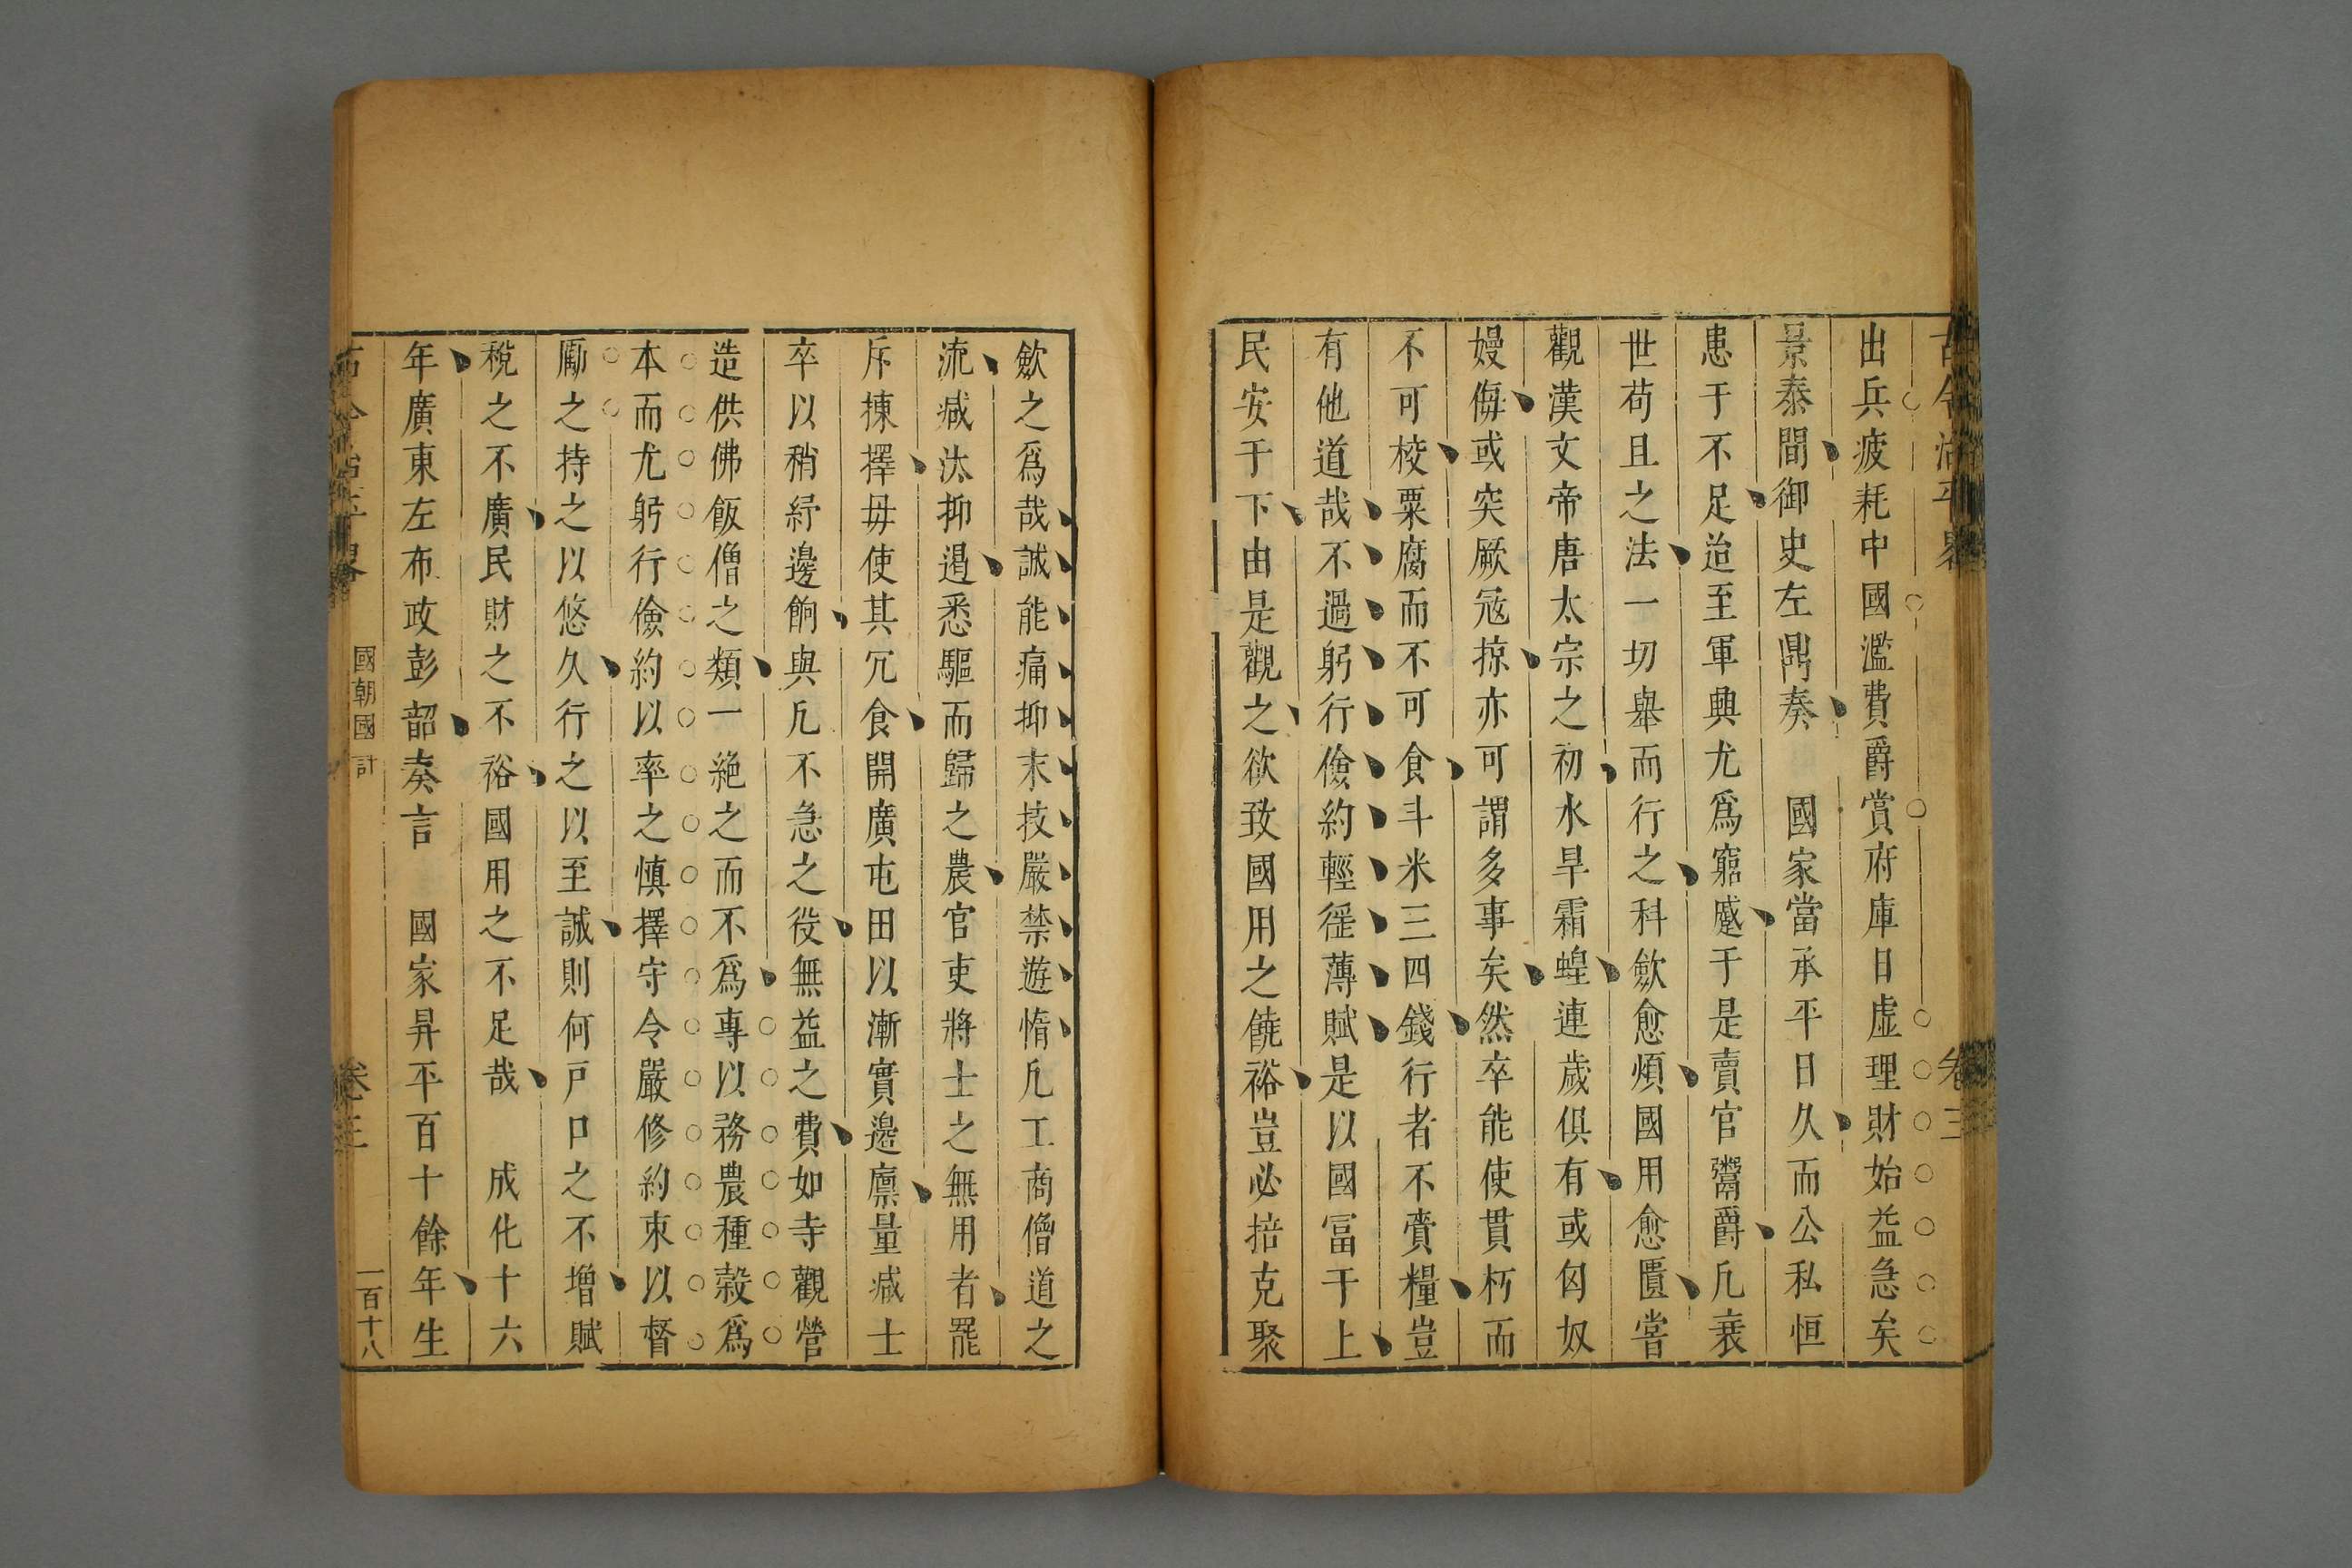 古今治平畧
卷三
出兵疲耗中國濫費爵賞府庫日虛理財始益急矣
景泰間御史左鼎奏　國家當承平日久而公私恒
患于不足迨至軍興尤爲窮蹙于是賣官鬻爵凢衰
世苟且之法一切舉而行之科歛愈煩國用愈匱嘗
觀漢文帝唐太宗之初水旱霜蝗連歲俱有或匈奴
嫚侮或突厥冦掠亦可謂多事矣然卒能使貫朽而
不可校粟腐而不可食斗米三四錢行者不賷糧豈
有他道哉不過躬行儉約輕徭薄賦是以國冨于上
民安于下由是觀之欲致國用之饒裕豈必掊克聚
歛之爲哉誠能痛抑末技嚴禁遊惰凢工商僧道之
流减汰抑遏悉驅而歸之農官吏將士之無用者罷
斥揀擇毋使其冗食開廣屯田以漸實邊廪量减士
卒以稍紓邊餉與凢不急之役無益之費如寺觀營
造供佛飯僧之類一絶之而不爲專以務農種榖爲
本而尤躬行儉約以率之慎擇守令嚴修約束以督
勵之持之以悠久行之以至誠則何戸口之不增賦
稅之不廣民財之不裕國用之不足哉　成化十六
年廣東左布政彭韶奏言　國家昇平百十餘年生
古今治平畧
國朝國計
卷三
一百十八